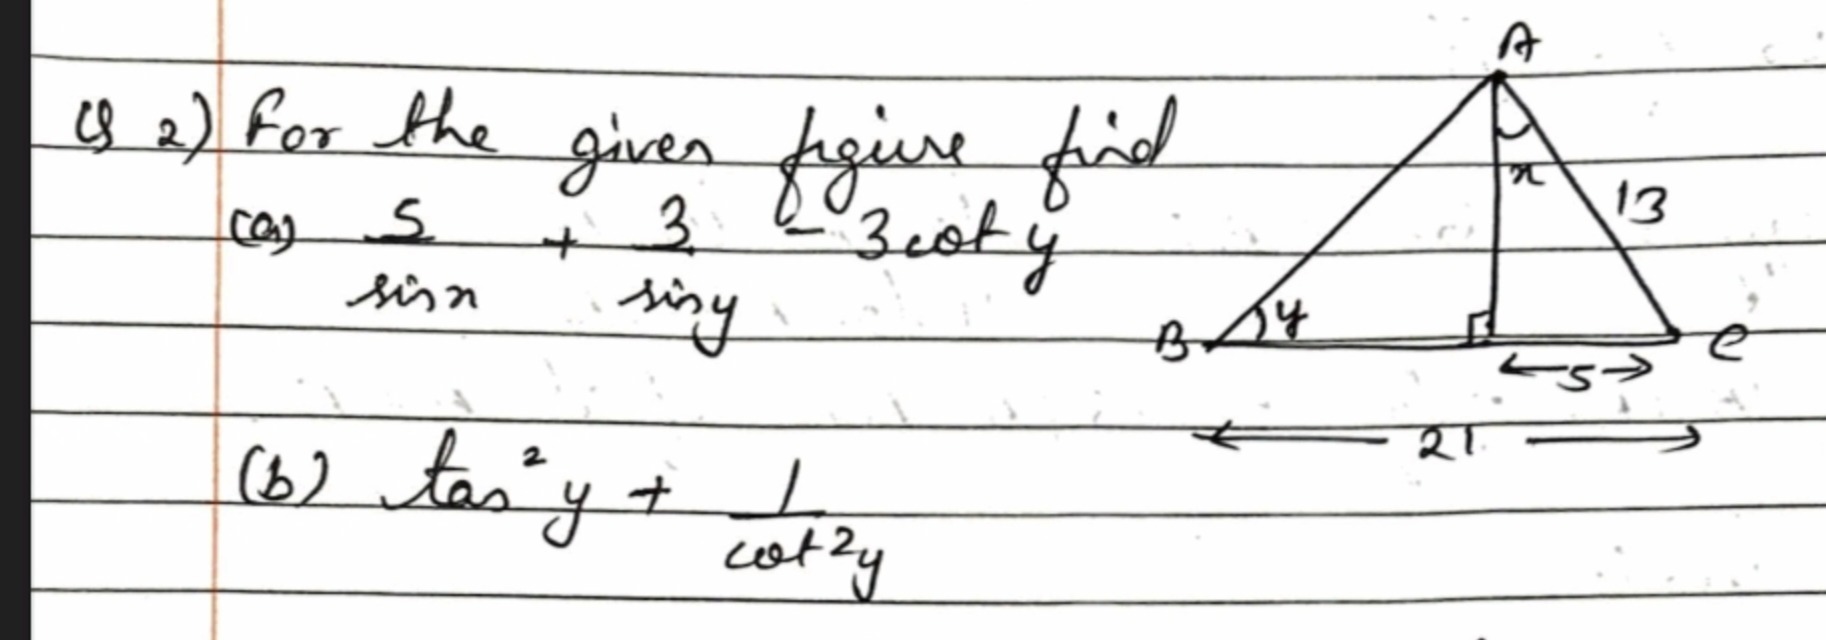 Q 2) For the given figure find
(a) 5/sin x + 3/sin y - 3 cot y
(b) tan² y + 1/cot² y
A
x
13
B
y
C
5
21